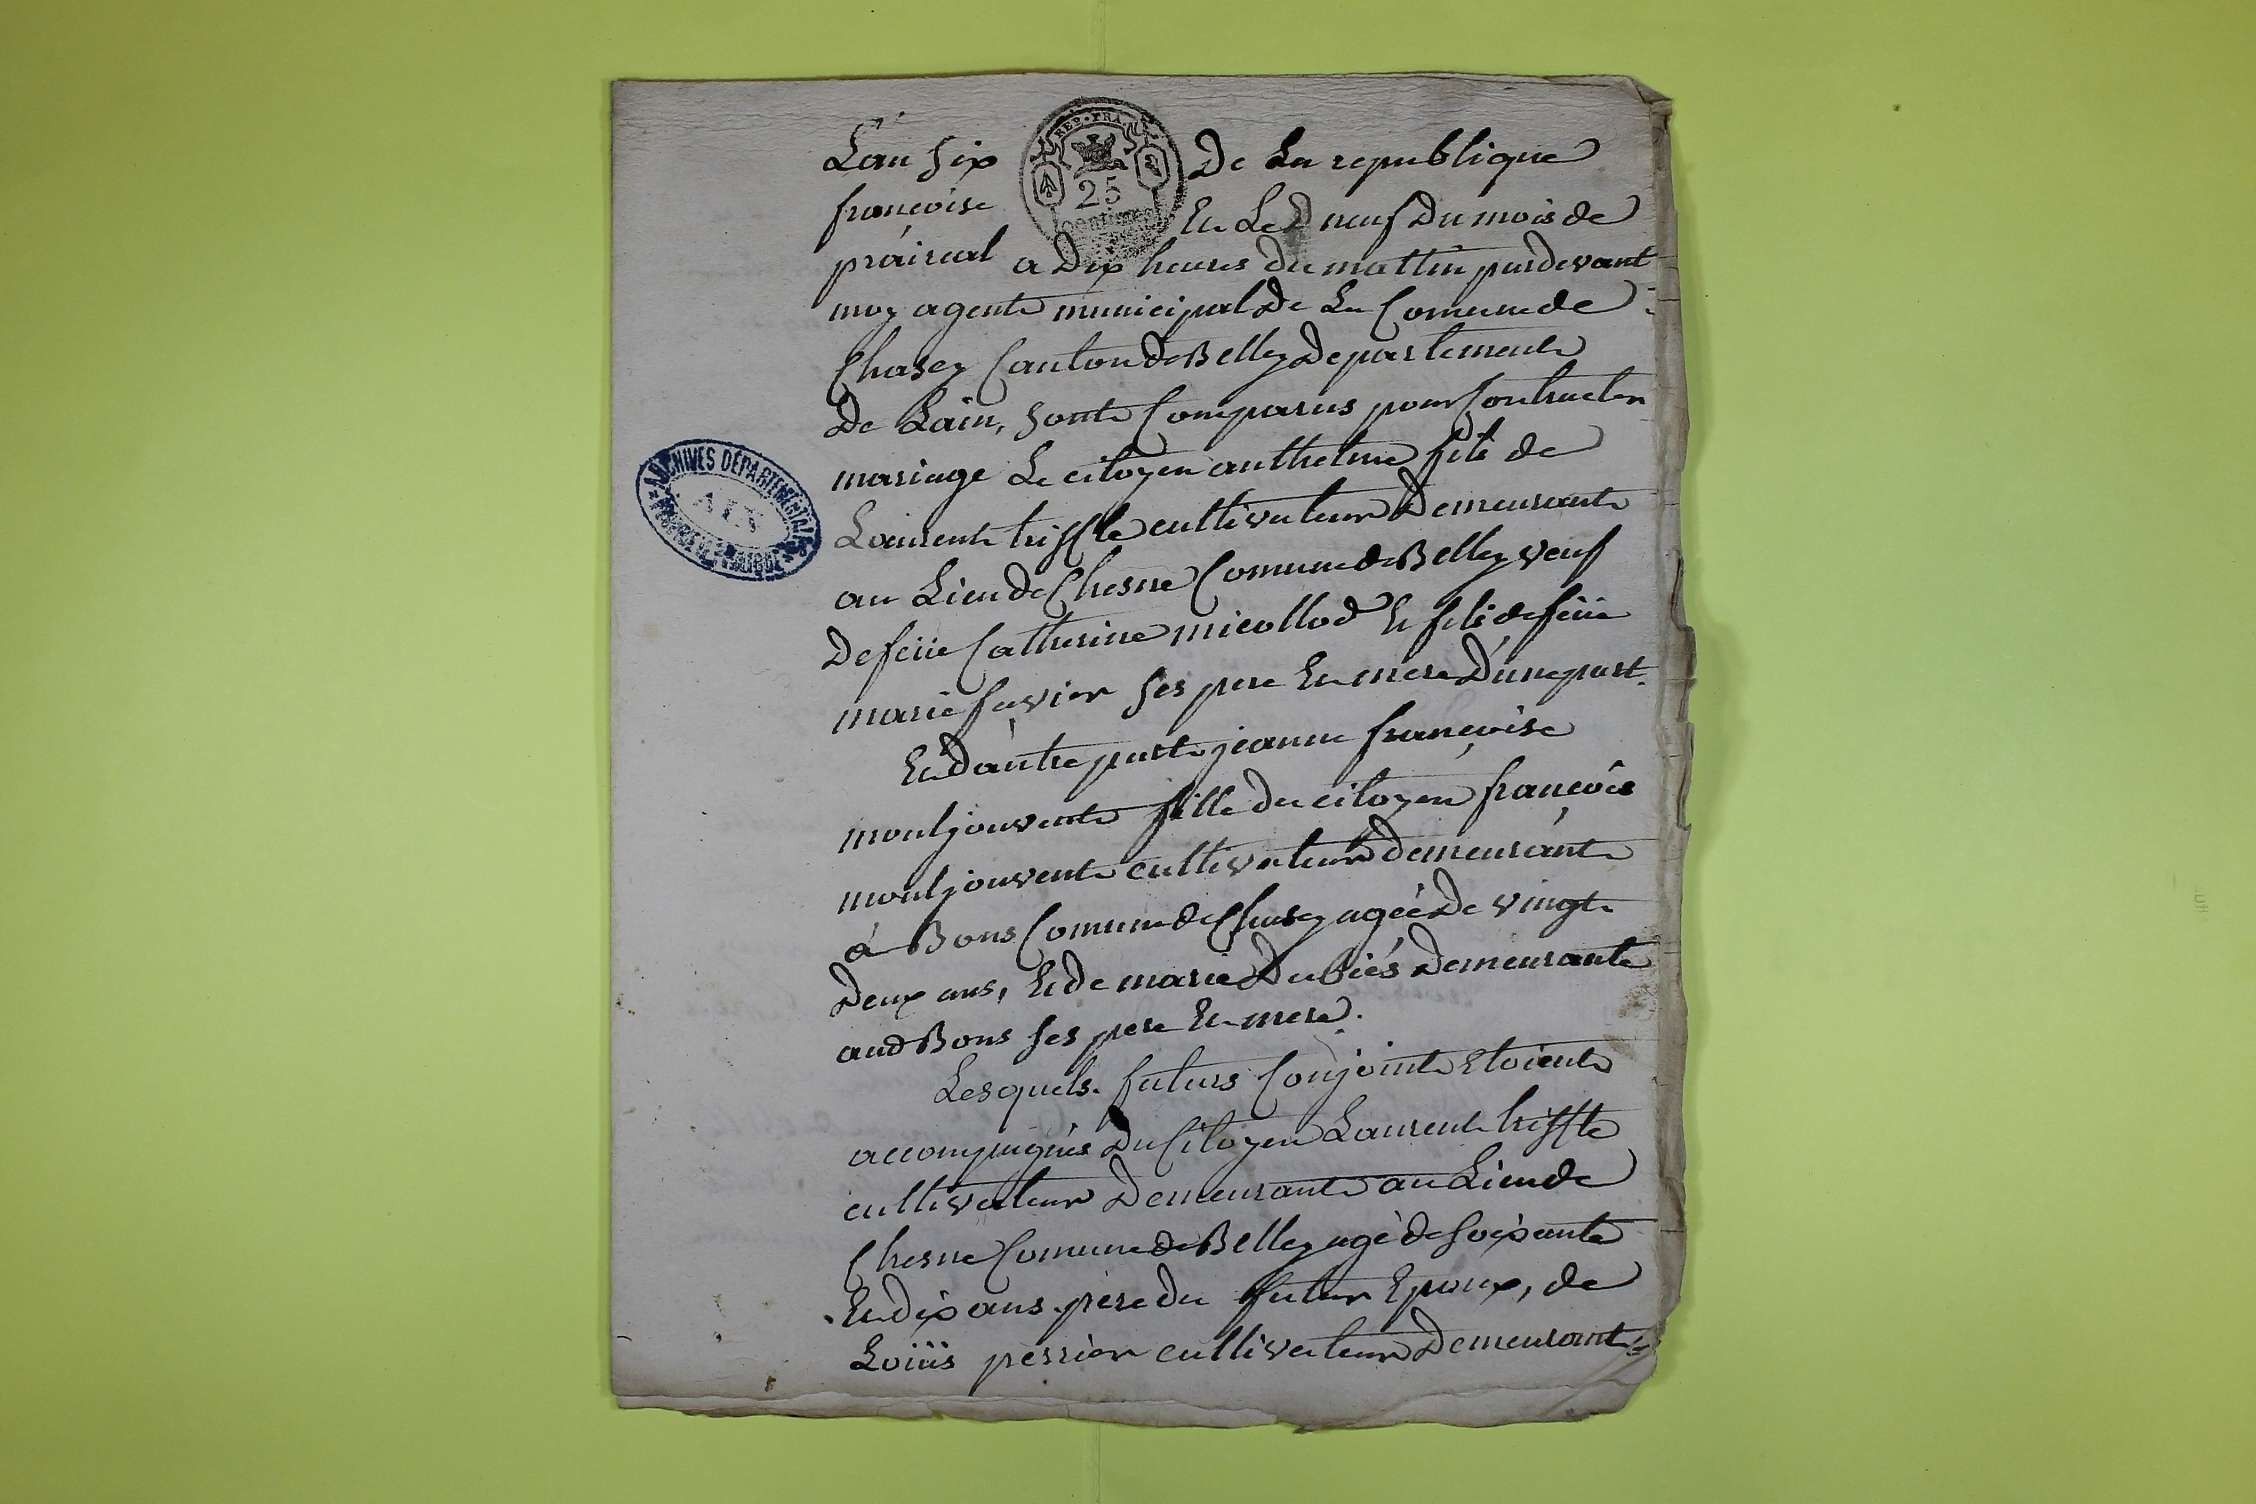 L'an six de La republique
françoise Et Le neuf Du mois de
praireal a Dix heures du mattin pardevant
moy agent municipal De La Comune de
Chasey Canton de Belley Departement
De Lain, sont Comparus pour Contracter
mariage Le citoyen anthelme fils de
Laurent triffle cultivateur Demeurant
au Lieu de Chesne Comune de Belley veuf
De feüe Catherine micollod Et fils de feüe
marie favier ses pere Et mere D'une part.
Et D'autre part jeanne françoise
montjouvent fille du citoyen françois
montjouvent cultivateur demeurant
à Bons Comune de Chasey agée De vingt
Deux ans, Et de marie Dubiés Demeurante
aud Bons ses pere Et mere.
Lesquels futurs Conjoints Etoient
accompagnés Du Citoyen Laurent triffle
cultivateur Demeurant au Lieu de
Chesne Comune de Belley agé de soixante
Et dix ans. père du futur Epoux, de
Loüis perrier cultivateur Demeurant
REP. FRA.
25
centimes
ARCHIVES DÉPARTEMENTALES
AIN